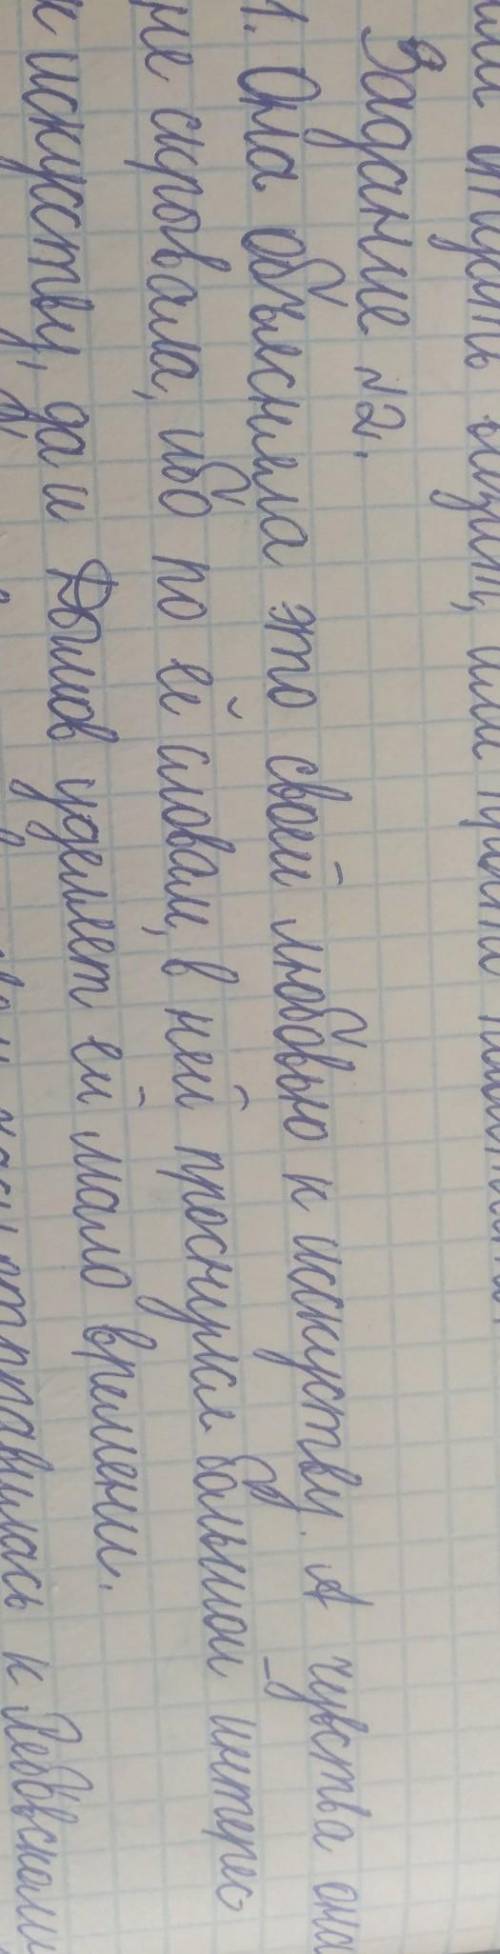 Задание №2.
1. Она объясняла это своей любовью к исскуству. А чувства она
не скрывала, ибо по её словам, в ней проснулся большой интерес
к искусству, да и Дымов уделяет ей мало времени.
отправилась к